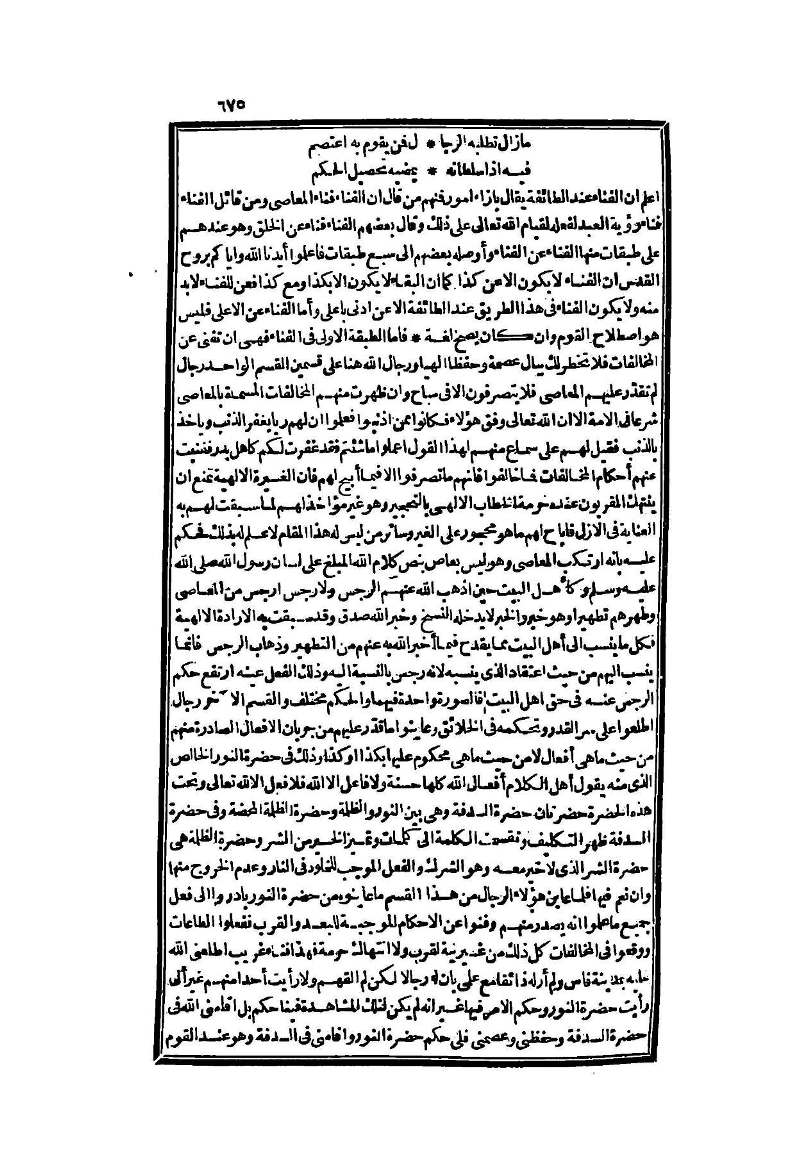 ٦٧٥
مازال تطلبه الرجا * ل فمن يقوم به اعتصم
فيه اذا سلطانه * يمضيه تحصيل الحكم
اعلم ان الفناء عند الطائفة يقال بازاء امور فمنهم من قال ان الفناء فناء المعاصى ومن قائل الفناء
فناء رؤية العبد لفعله لقيام الله تعالى على ذلك وقال بعضهم الفناء فناء عن الخلق وهو عندهم
على طبقات منها الفناء عن الفناء وأوصله بعضهم الى سبع طبقات فاعلموا أيدنا الله واياكم بروح
القدس ان الفناء لا يكون الا عن كذا كما ان البقاء لا يكون الا بكذا ومع كذا فعن للفناء لا بد
منه ولا يكون الفناء فى هذا الطريق عند الطائفة الا عن ادنى باعلى وأما الفناء عن الاعلى فليس
هو اصطلاح القوم وان كان يصح لغة * فاما الطبقة الاولى فى الفناء فهى ان تفنى عن
المخالفات فلا تخطر لك ببال عصمة وحفظا الهيا ورجال الله هنا على قسمين القسم الواحد رجال
لم تقدر عليهم المعاصى فلا يتصرفون الا فى مباح وان ظهرت منهم المخالفات المسماة بالمعاصى
شرعا فى الامة الا ان الله تعالى وفق هؤلاء فكانوا ممن اذنبوا فعلموا ان لهم ربا يغفر الذنب وياخذ
بالذنب فقيل لهم على سماع منهم لهذا القول اعملوا ما شئتم فقد غفرت لكم كاهل بدر ففنيت
عنهم أحكام المخالفات فما خالفوا فانهم ما تصرفوا الا فيما أبيح لهم فان الغيرة الالهية تمنع ان
ينتهك المقربون عنده حرمة الخطاب الالهى بالتحجير وهو غير مؤاخذ لهم لما سبقت لهم به
العناية فى الازل فاباح لهم ما هو محجور على الغير وسائر من ليس له هذا المقام لا علم له بذلك فحكم
عليه بانه ارتكب المعاصى وهو ليس بعاص بنص كلام الله المبلغ على لسان رسول الله صلى الله
عليه وسلم وكأهل البيت حين اذهب الله عنهم الرجس ولا رجس ارجس من المعاصى
وطهرهم تطهيرا وهو خبر والخبر لا يدخله النسخ وخبر الله صدق وقد سبقت به الارادة الالهية
فكل ما ينسب الى أهل البيت مما يقدح فيما أخبر الله به عنهم من التطهير وذهاب الرجس فانما
ينسب اليهم من حيث اعتقاد الذى ينسبه لانه رجس بالنسبة اليه وذلك الفعل عينه ارتفع حكم
الرجس عنه فى حق اهل البيت فالصورة واحدة فيهما والحكم مختلف والقسم الآخر رجال
اطلعوا على سر القدر وتحكمه فى الخلائق وعاينوا ما قدر عليهم من جريان الافعال الصادرة منهم
من حيث ما هى أفعال لا من حيث ما هى محكوم عليها بكذا او كذا وذلك فى حضرة النور الخالص
الذى منه يقول أهل الكلام أفعال الله كلها حسنة ولا فاعل الا الله فلا فعل الا لله تعالى وتحت
هذه الحضرة حضرتان حضرة السدفة وهى بين النور والظلمة وحضرة الظلمة المحضة وفى حضرة
السدفة ظهر التكليف وتقسمت الكلمة الى كلمات وتميز الخير من الشر وحضرة الظلمة هى
حضرة الشر الذى لا خير معه وهو الشرك والفعل الموجب للخلود فى النار وعدم الخروج منها
وان نعم فيها فلما عاين هؤلاء الرجال من هذا القسم ما عاينوه من حضرة النور بادروا الى فعل
جميع ما علموا انه يصدر منهم وفنوا عن الاحكام الموجبة للبعد والقرب ففعلوا الطاعات
ووقعوا فى المخالفات كل ذلك من غير نية لقرب ولا انتهاك حرمة فهذا فناء غريب اطلعنى الله
عليه بمدينة فاس ولم أر له ذائقا مع علمى بان له رجالا لكن لم القهم ولا رأيت أحدا منهم غير أنى
رأيت حضرة النور وحكم الامر فيها غير انه لم يكن لتلك المشاهدة فينا حكم بل اقامنى الله فى
حضرة السدفة وحفظنى وعصمنى فلى حكم حضرة النور واقامنى فى السدفة وهو عند القوم